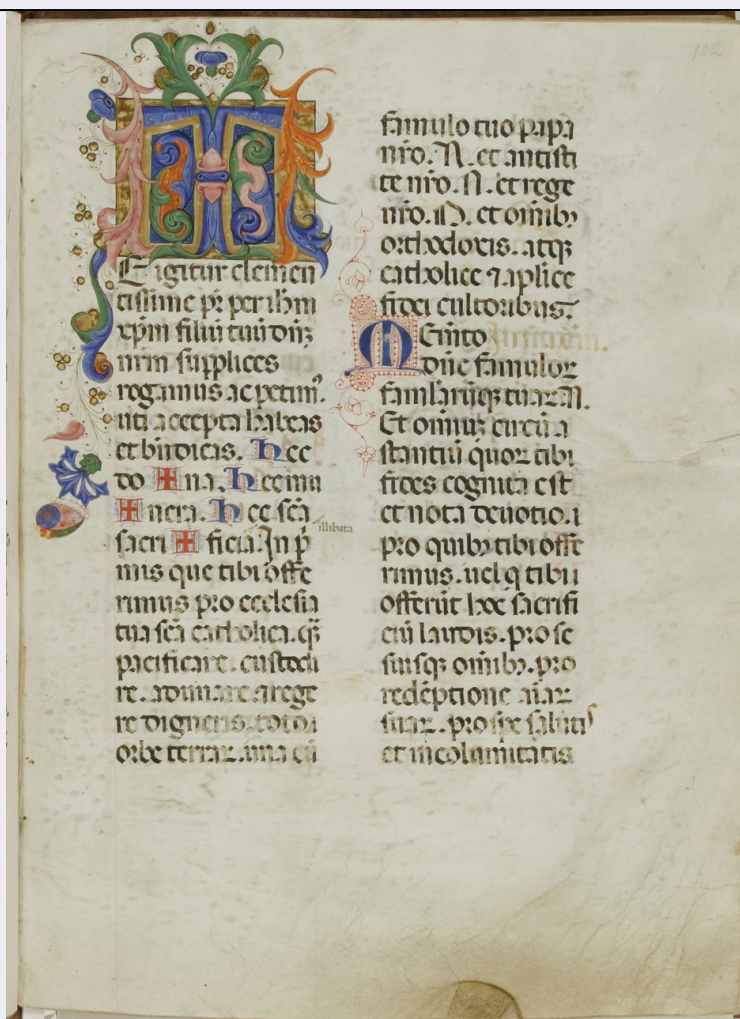 102
T
E igitur clemen
tissime pr̄ per ihm̄
xp̄m filiū tuū dn̄ꝫ
nr̄m supplices
rogamus ac petim᷒.
uti accepta habeas
et bn̄dicas. Hec
do ✠ na. Hec mu
✠ nera. Hec scā
illibata
sacri ✠ ficia. In p̄
mis que tibi offe
rimus pro ecclesia
tua scā catholica. q̄ꝫ
pacificare. custodi
re. adunare. ⁊ rege
re digneris. toto
orbe terraꝝ. una cū
famulo tuo papa
nr̄o. N. et antisti
te nr̄o. N. et rege
nr̄o. N. et om̄ibꝫ
orthodoxis. atqꝫ
catholice ⁊ aplice
fidei cultoribus.
Memēto
dn̄e famuloꝝ
famlarūqꝫ tuaꝝ N.
Et omniuꝫ circū a
stantiū quoꝝ tibi
fides cognita est
et nota deuotio.
pro quibꝫ tibi offe
rimus. uel q̄ tibi
offerūt hoc sacrifi
ciū laudis. pro se
suisqꝫ om̄ibꝫ. pro
redēptione aīaꝝ
suaꝝ. pro spe salutis
et incolumitatis